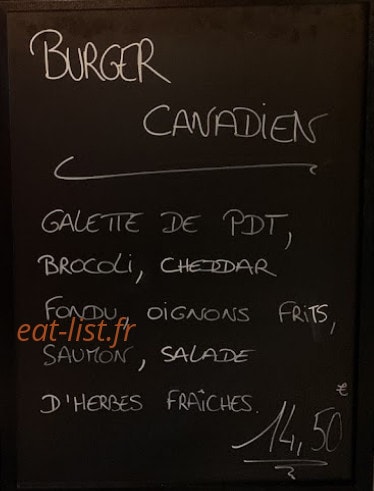 BURGER
CANADIEN
GALETTE DE PDT,
BROCOLI, CHEDDAR
FONDU, OIGNONS FRITS,
eat-list.fr
SAUMON, SALADE
D'HERBES FRAÎCHES.
14,50 €